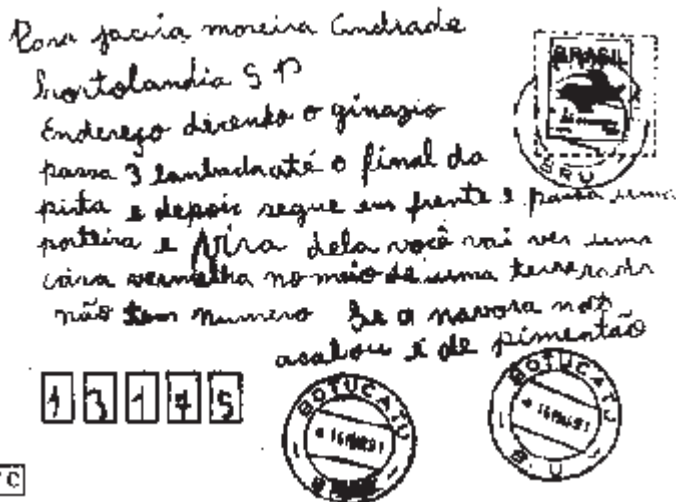 Para jacira moreira Andrade
hortolandia S P
Endereço decendo o ginazio
passa 3 lombada até o final da
pista e depois segue em frente e passa uma
porteira e vira dela você vai ver uma
casa vermelha no meio de uma
não tem numero Se a navora não
acabou é de pimentão
BRASIL
BRU
13175
BOTUCATU
BOTUCATU
B U
TC